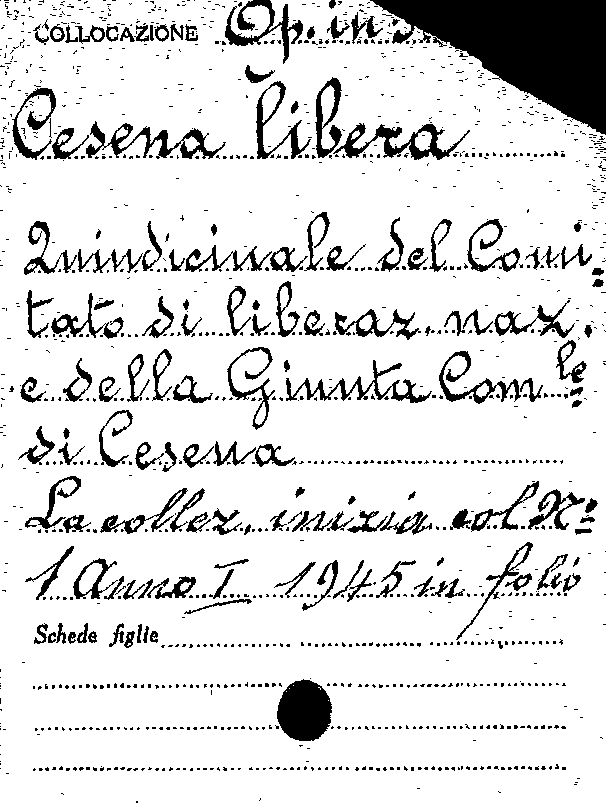 COLLOCAZIONE Op. in
Cesena libera
Quindicinale del Comi=
tato di liberaz. naz.
e della Giunta Com.le
di Cesena
La collez. inizia col Nº
1 Anno I 1945 in folio
Schede figlie